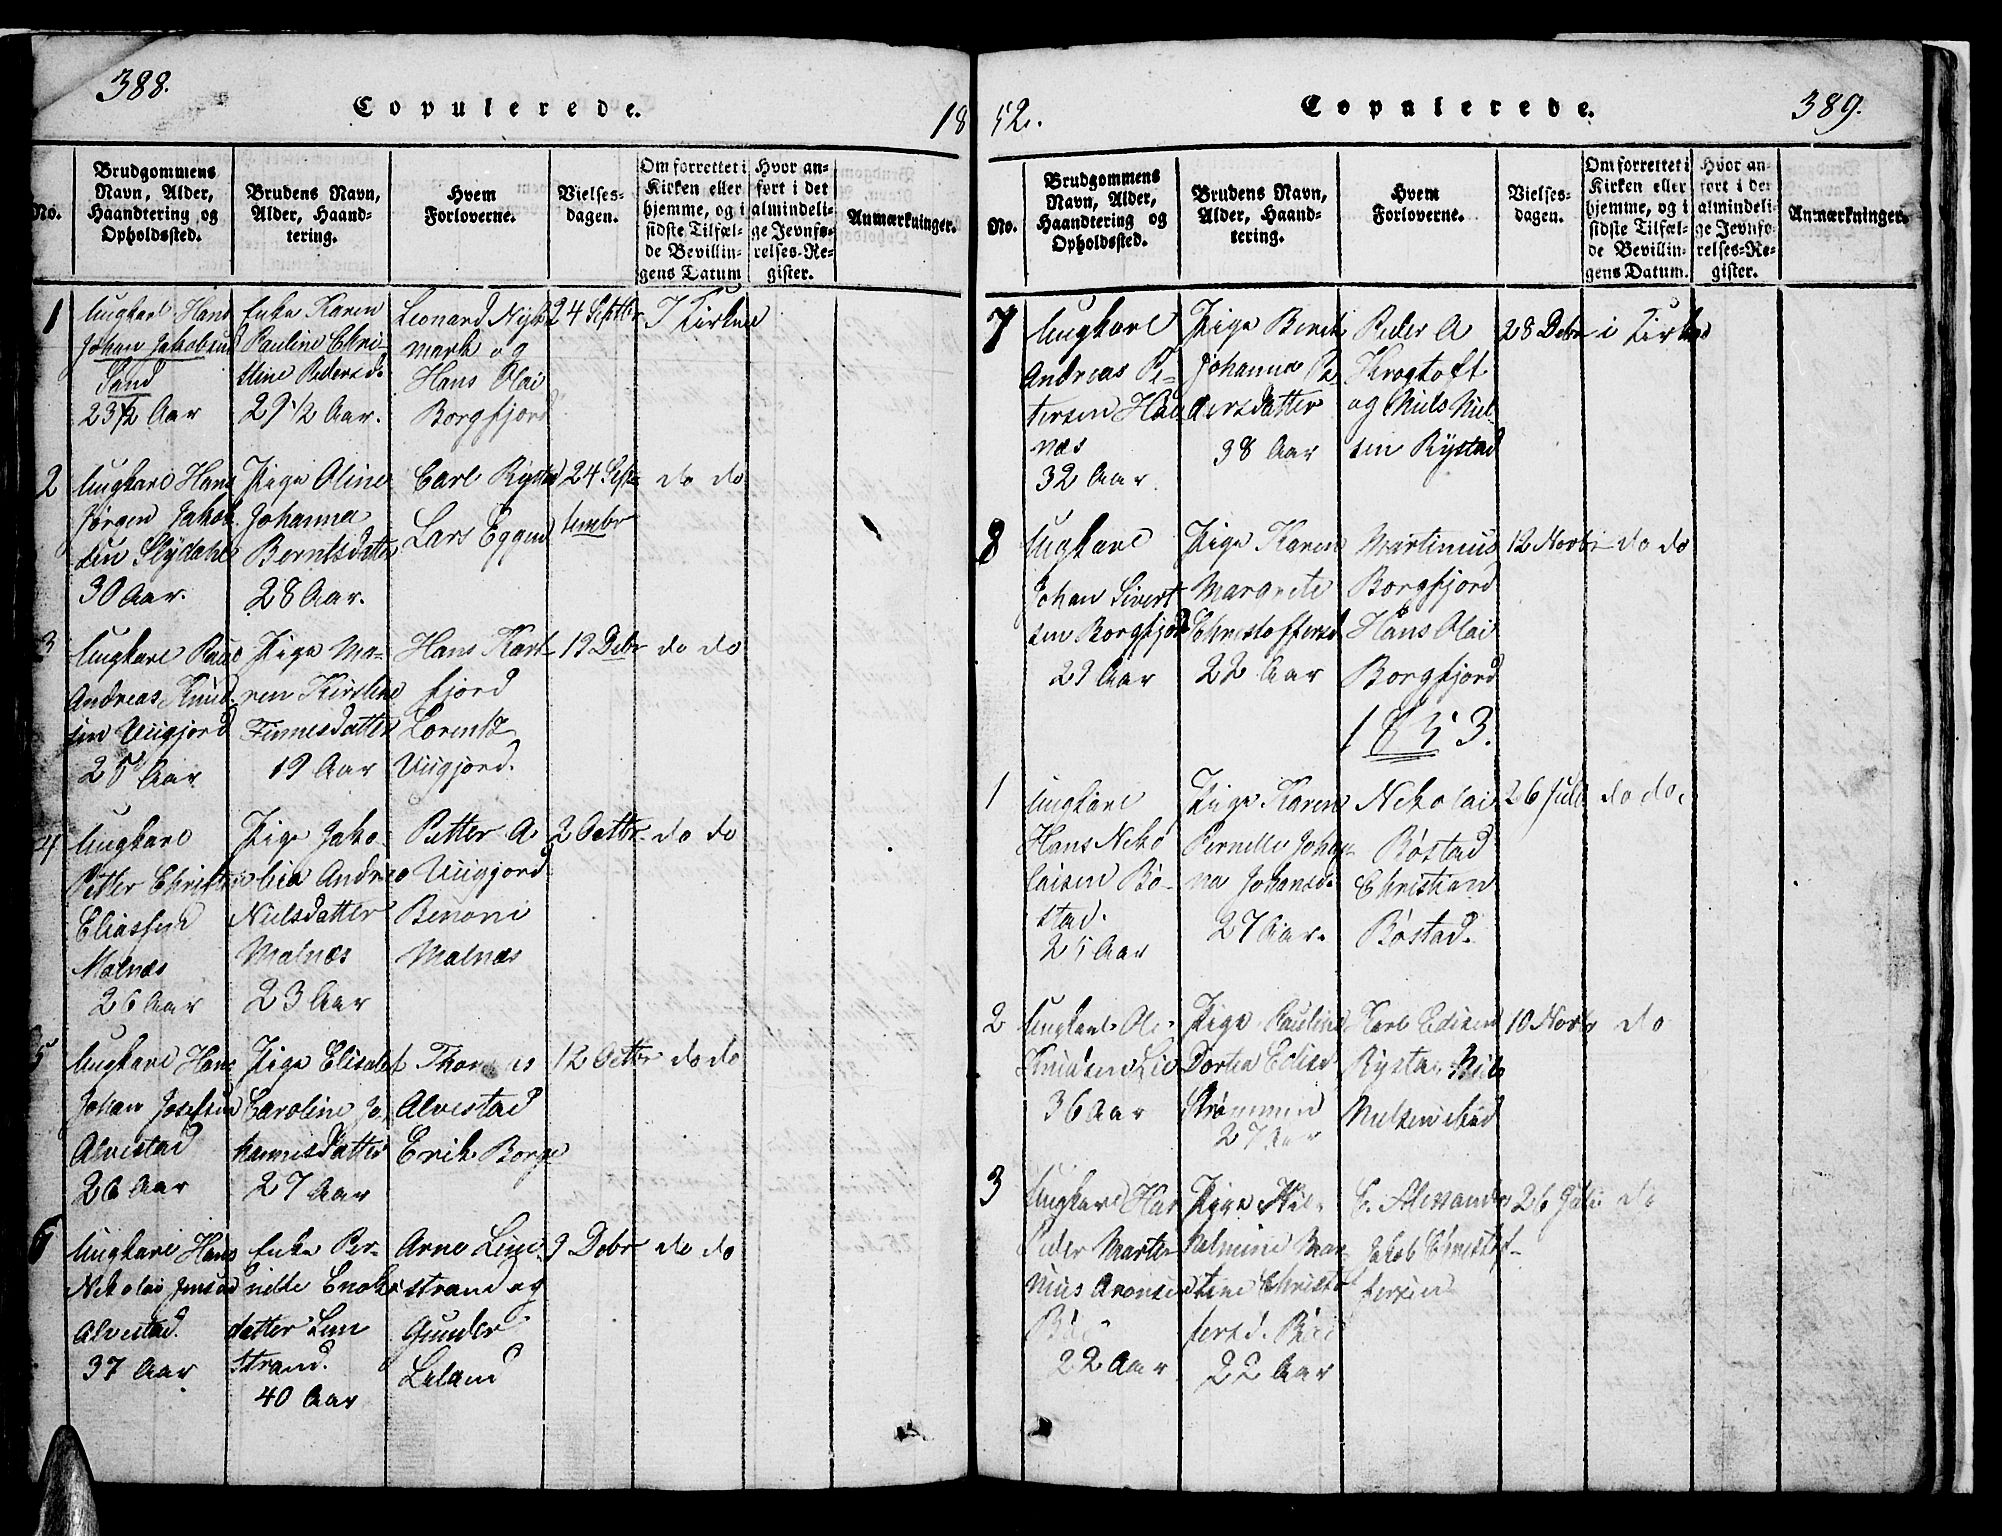 388.
Copulerede.
18
No.
Brudgommens
Navn, Alder,
Haandtering og
Opholdssted.
Brudens Navn,
Alder, Haand-
tering.
Hvem
Forloverne.
Vielses-
dagen.
Om forrettet i
Kirken eller
hjemme, og i
sidste Tilfæl-
de Bevillin-
gens Datum
Hvor an-
ført i det
almindeli-
ge Jevnfø-
relses-Re-
gister.
Anmærkninger.
1
Ungkarl Hans
Johan Jakobsen
Sand
23½ Aar
Enke Karen
Pauline Chri-
stine Pedersd.
29½ Aar.
Leonard Nyk
mark og
Hans Olai
Borgfjord
24 Septbr
I Kirken
2
Ungkarl Hans
Jørgen Jakob
sen Slydahl
30 Aar.
Pige Oline
Johanna
Berntsdatter
28 Aar.
Carl Rystad
Lars Eggen
24 Sep
tembr
do do
3
Ungkarl
Andreas Knud
sen Uugjord
25 Aar
Pige Ma-
ren Kirstine
Finnesdatter
19 Aar
Hans Kart-
fjord
Lorentz
Uugjord.
19 Debr
do do
4
Ungkarl
Petter Christi
Eliassen
Malnæs
26 Aar
Pige Jako-
bia Andrea
Nielsdatter
Malnæs
23 Aar
Petter A.
Uugjord
Benoni
Malnæs
2 Octbr.
do do
5
Ungkarl Hans
Johan Josefsen
Alvestad
26 Aar
Pige Elisabet
Caroline Jo
hannesdatter
27 Aar
Thomas
Alvestad
Erik Borge
12 Octbr
do do
6
Ungkarl Hans
Nekolai Jensen
Alvestad.
37 Aar
Enke Per-
nille Enoks
datter Lin
strand.
40 Aar
Arne Line
strand og
Gunder
Leland
9 Debr
do do
52.
Copulerede.
389.
No.
Brudgommens
Navn, Alder,
Haandtering og
Opholdssted.
Brudens Navn,
Alder, Haand-
tering.
Hvem
Forloverne.
Vielses-
dagen.
Om forrettet i
Kirken eller
hjemme, og i
sidste Tilfæl-
de Bevillin-
gens Datum.
Hvor an-
ført i det
almindeli-
ge Jevnfø-
relses-Re-
gister.
Anmærkninger.
7
Ungkarl
Andreas Pe-
tersen Hau
næs
32 Aar
Pige Berit
Johanna Pe
dersdatter
38 Aar
Peder A
Krogtoft
og Niels Niel-
sen Rystad
28 Debr
i Kirken
8
Ungkarl
Johan Sivert
sen Borgfjord
29 Aar
Pige Karen
Margrete
Christoffersd
22 Aar
Martinus
Borgfjord
Hans Olai
Borgfjord
12 Novbr
do do
1853.
1
Ungkarl
Hans Neko
laisen Bø-
stad.
25 Aar
Pige Karen
Pernelle Johan
na Johansd.
27 Aar.
Nekolai
Bøstad
Christian
Bøstad.
26 Juli
do do.
2
Ungkarl Ole
Knudsen Lie
36 Aar
Pige Pauline
Dortea Edisd
Strømmen
27 Aar
Karl Edisen
Rystad Niels
Nielsen
10 Novbr
do
3
Ungkarl Hans
Peder Marti-
nius Aronsen
22 Aar
Pige Wil-
helmine Mar-
tine Christof
fersd.
22 Aar
Jakob Christof-
fersen
26 Juli
do